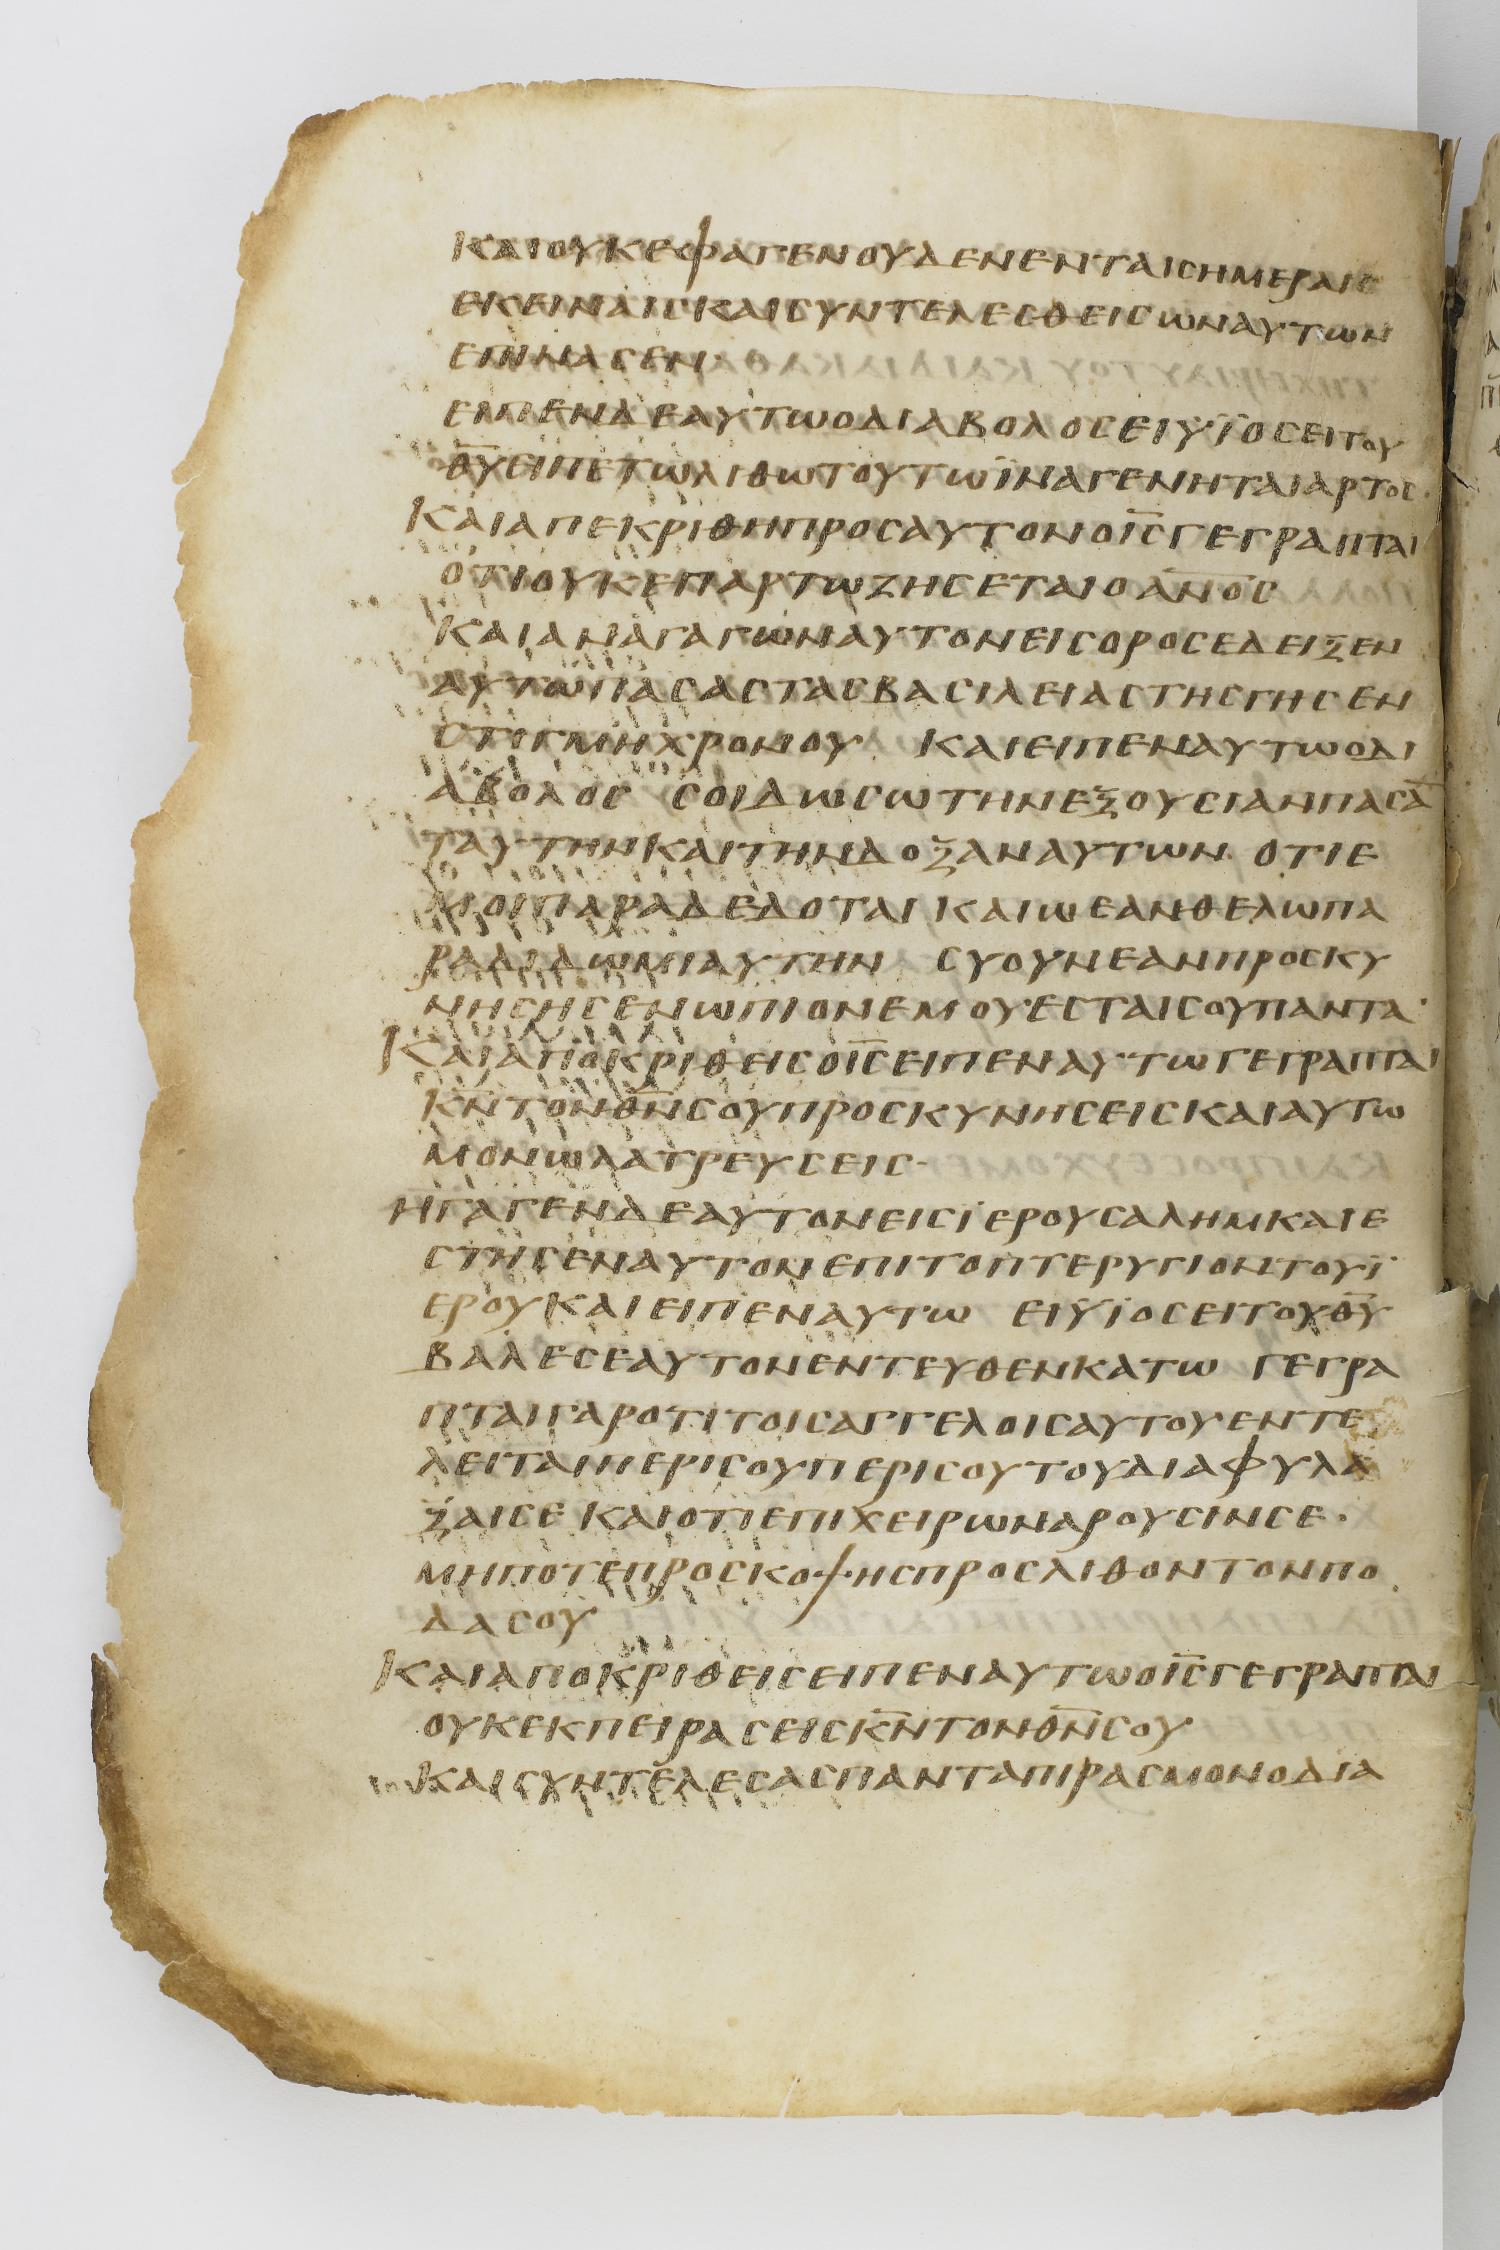 ΚΑΙΟΥΚΕΦΑΓΕΝΟΥΔΕΝΕΝΤΑΙΣΗΜΕΡΑΙΣ
ΕΚΕΙΝΑΙΣΚΑΙΣΥΝΤΕΛΕΣΘΕΙΣΩΝΑΥΤΩΝ
ΕΠΙΝΑΣΕΝ
ΕΙΠΕΝΔΕΑΥΤΩΟΔΙΑΒΟΛΟΣΕΙΥΪΟΣΕΙΤΟΥ
Θ̅Υ̅ΕΙΠΕΤΩΛΙΘΩΤΟΥΤΩΪΝΑΓΕΝΗΤΑΙΑΡΤΟΣ·
ΚΑΙΑΠΕΚΡΙΘΗΠΡΟΣΑΥΤΟΝΟΙ̅Σ̅ΓΕΓΡΑΠΤΑΙ
ΟΤΙΟΥΚΕΠΑΡΤΩΖΗΣΕΤΑΙΟΑ̅Ν̅Ο̅Σ̅
ΚΑΙΑΝΑΓΑΓΩΝΑΥΤΟΝΕΙΣΟΡΟΣΕΔΕΙΞΕΝ
ΑΥΤΩΠΑΣΑΣΤΑΣΒΑΣΙΛΕΙΑΣΤΗΣΓΗΣΕΝ
ΣΤΙΓΜΗΧΡΟΝΟΥ ΚΑΙΕΙΠΕΝΑΥΤΩΟΔΙ
ΑΒΟΛΟΣ ΣΟΙΔΩΣΩΤΗΝΕΞΟΥΣΙΑΝΠΑΣΑ̅
ΤΑΥΤΗΝΚΑΙΤΗΝΔΟΞΑΝΑΥΤΩΝ ΟΤΙΕ
ΜΟΙΠΑΡΑΔΕΔΟΤΑΙ ΚΑΙΩΕΑΝΘΕΛΩΠΑ
ΡΑΔΙΔΩΜΙΑΥΤΗΝ ΣΥΟΥΝΕΑΝΠΡΟΣΚΥ
ΝΗΣΗΣΕΝΩΠΙΟΝΕΜΟΥΕΣΤΑΙΣΟΥΠΑΝΤΑ·
ΚΑΙΑΠΟΚΡΙΘΕΙΣΟΙ̅Σ̅ΕΙΠΕΝΑΥΤΩΓΕΓΡΑΠΤΑΙ
Κ̅Ν̅ΤΟΝΘ̅Ν̅ΣΟΥΠΡΟΣΚΥΝΗΣΕΙΣΚΑΙΑΥΤΩ
ΜΟΝΩΛΑΤΡΕΥΣΕΙΣ·
ΗΓΑΓΕΝΔΕΑΥΤΟΝΕΙΣΪΕΡΟΥΣΑΛΗΜΚΑΙΕ
ΣΤΗΣΕΝΑΥΤΟΝΕΠΙΤΟΠΤΕΡΥΓΙΟΝΤΟΥΪ
ΕΡΟΥΚΑΙΕΙΠΕΝΑΥΤΩ ΕΙΫΪΟΣΕΙΤΟΥΘ̅Υ̅
ΒΑΛΕΣΕΑΥΤΟΝΕΝΤΕΥΘΕΝΚΑΤΩ ΓΕΓΡΑ
ΠΤΑΙΓΑΡΟΤΙΤΟΙΣΑΓΓΕΛΟΙΣΑΥΤΟΥΕΝΤΕ
ΛΕΙΤΑΙΠΕΡΙΣΟΥΠΕΡΙΣΟΥΤΟΥΔΙΑΦΥΛΑ
ΞΑΙΣΕ ΚΑΙΟΤΙΕΠΙΧΕΙΡΩΝΑΡΟΥΣΙΝΣΕ·
ΜΗΠΟΤΕΠΡΟΣΚΟΨΗΣΠΡΟΣΛΙΘΟΝΤΟΝΠΟ
ΔΑΣΟΥ
ΚΑΙΑΠΟΚΡΙΘΕΙΣΕΙΠΕΝΑΥΤΩΟΙ̅Σ̅ΓΕΓΡΑΠΤΑΙ
ΟΥΚΕΚΠΕΙΡΑΣΕΙΣΚ̅Ν̅ΤΟΝΘ̅Ν̅ΣΟΥ
ΚΑΙΣΥΝΤΕΛΕΣΑΣΠΑΝΤΑΠΙΡΑΣΜΟΝΟΔΙΑ